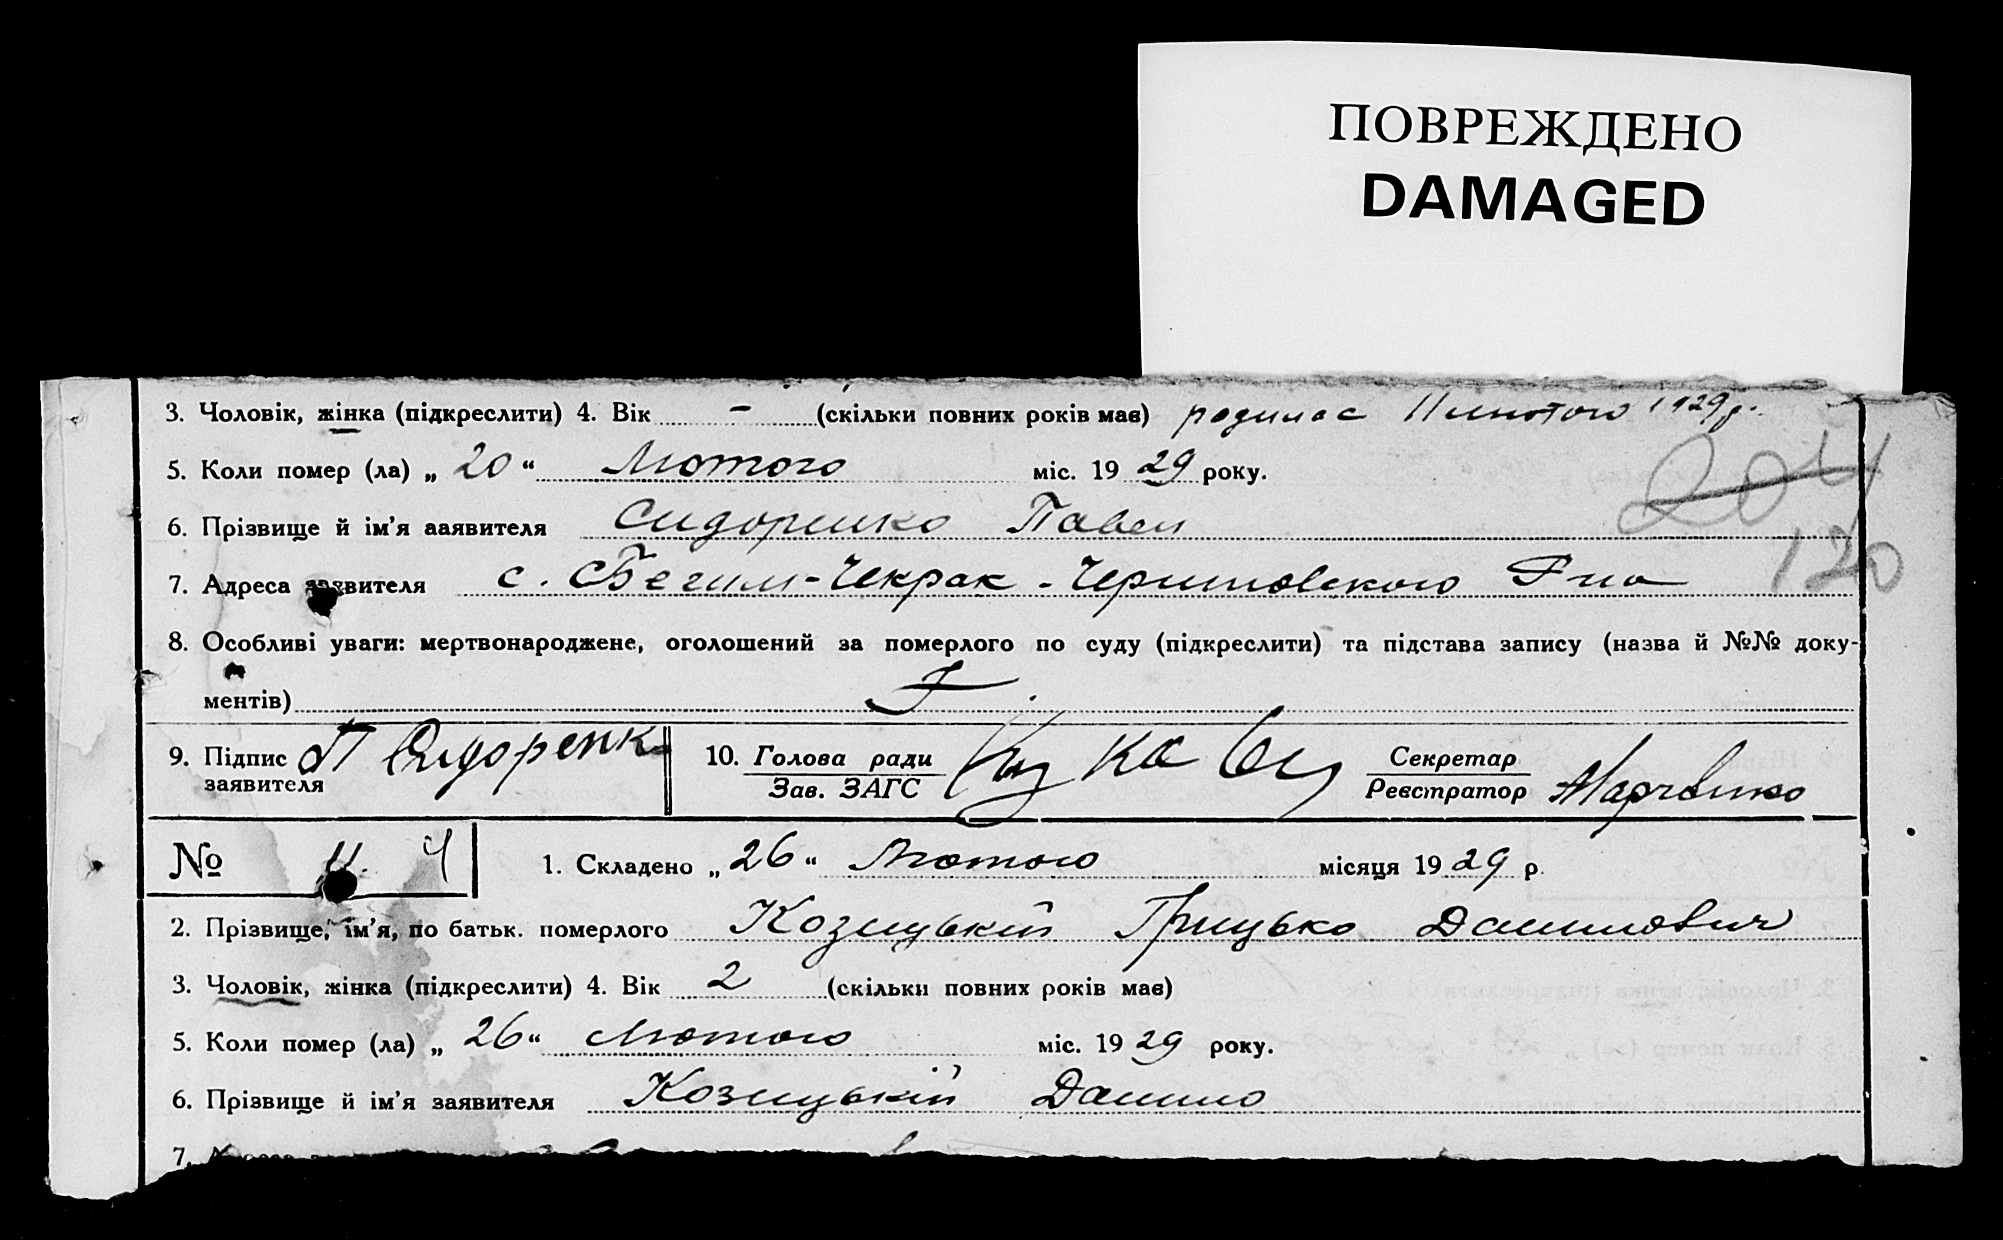 ПОВРЕЖДЕНО
DAMAGED
3. Чоловік, жінка (підкреслити) 4. Вік - (скільки повних років має) родилас 11 лютого 1929 р.
5. Коли помер (ла) „ 20 “ Лютого міс. 19 29 року.
204
6. Прізвище й ім’я заявителя Сидоренко Павел
120
7. Адреса заявителя с. Бегим-Чекрак -
8. Особливі уваги: мертвонароджене, оголошений за померлого по суду (підкреслити) та підстава запису (назва й №№ доку-
ментів)
9. Підпис заявителя П Сидоренк 10. Голова ради Зав. ЗАГС Секретар Реєстратор Марченко
№ 4 1. Складено „ 26 “ Лютого місяця 19 29 р.
2. Прізвище, ім’я, по батьк. померлого Козицький Грицько Данилович
3. Чоловік, жінка (підкреслити) 4. Вік 2 (скільки повних років має)
5. Коли помер (ла) „ 26 “ Лютого міс. 19 29 року.
6. Прізвище й ім’я заявителя Козицький Данило
7.